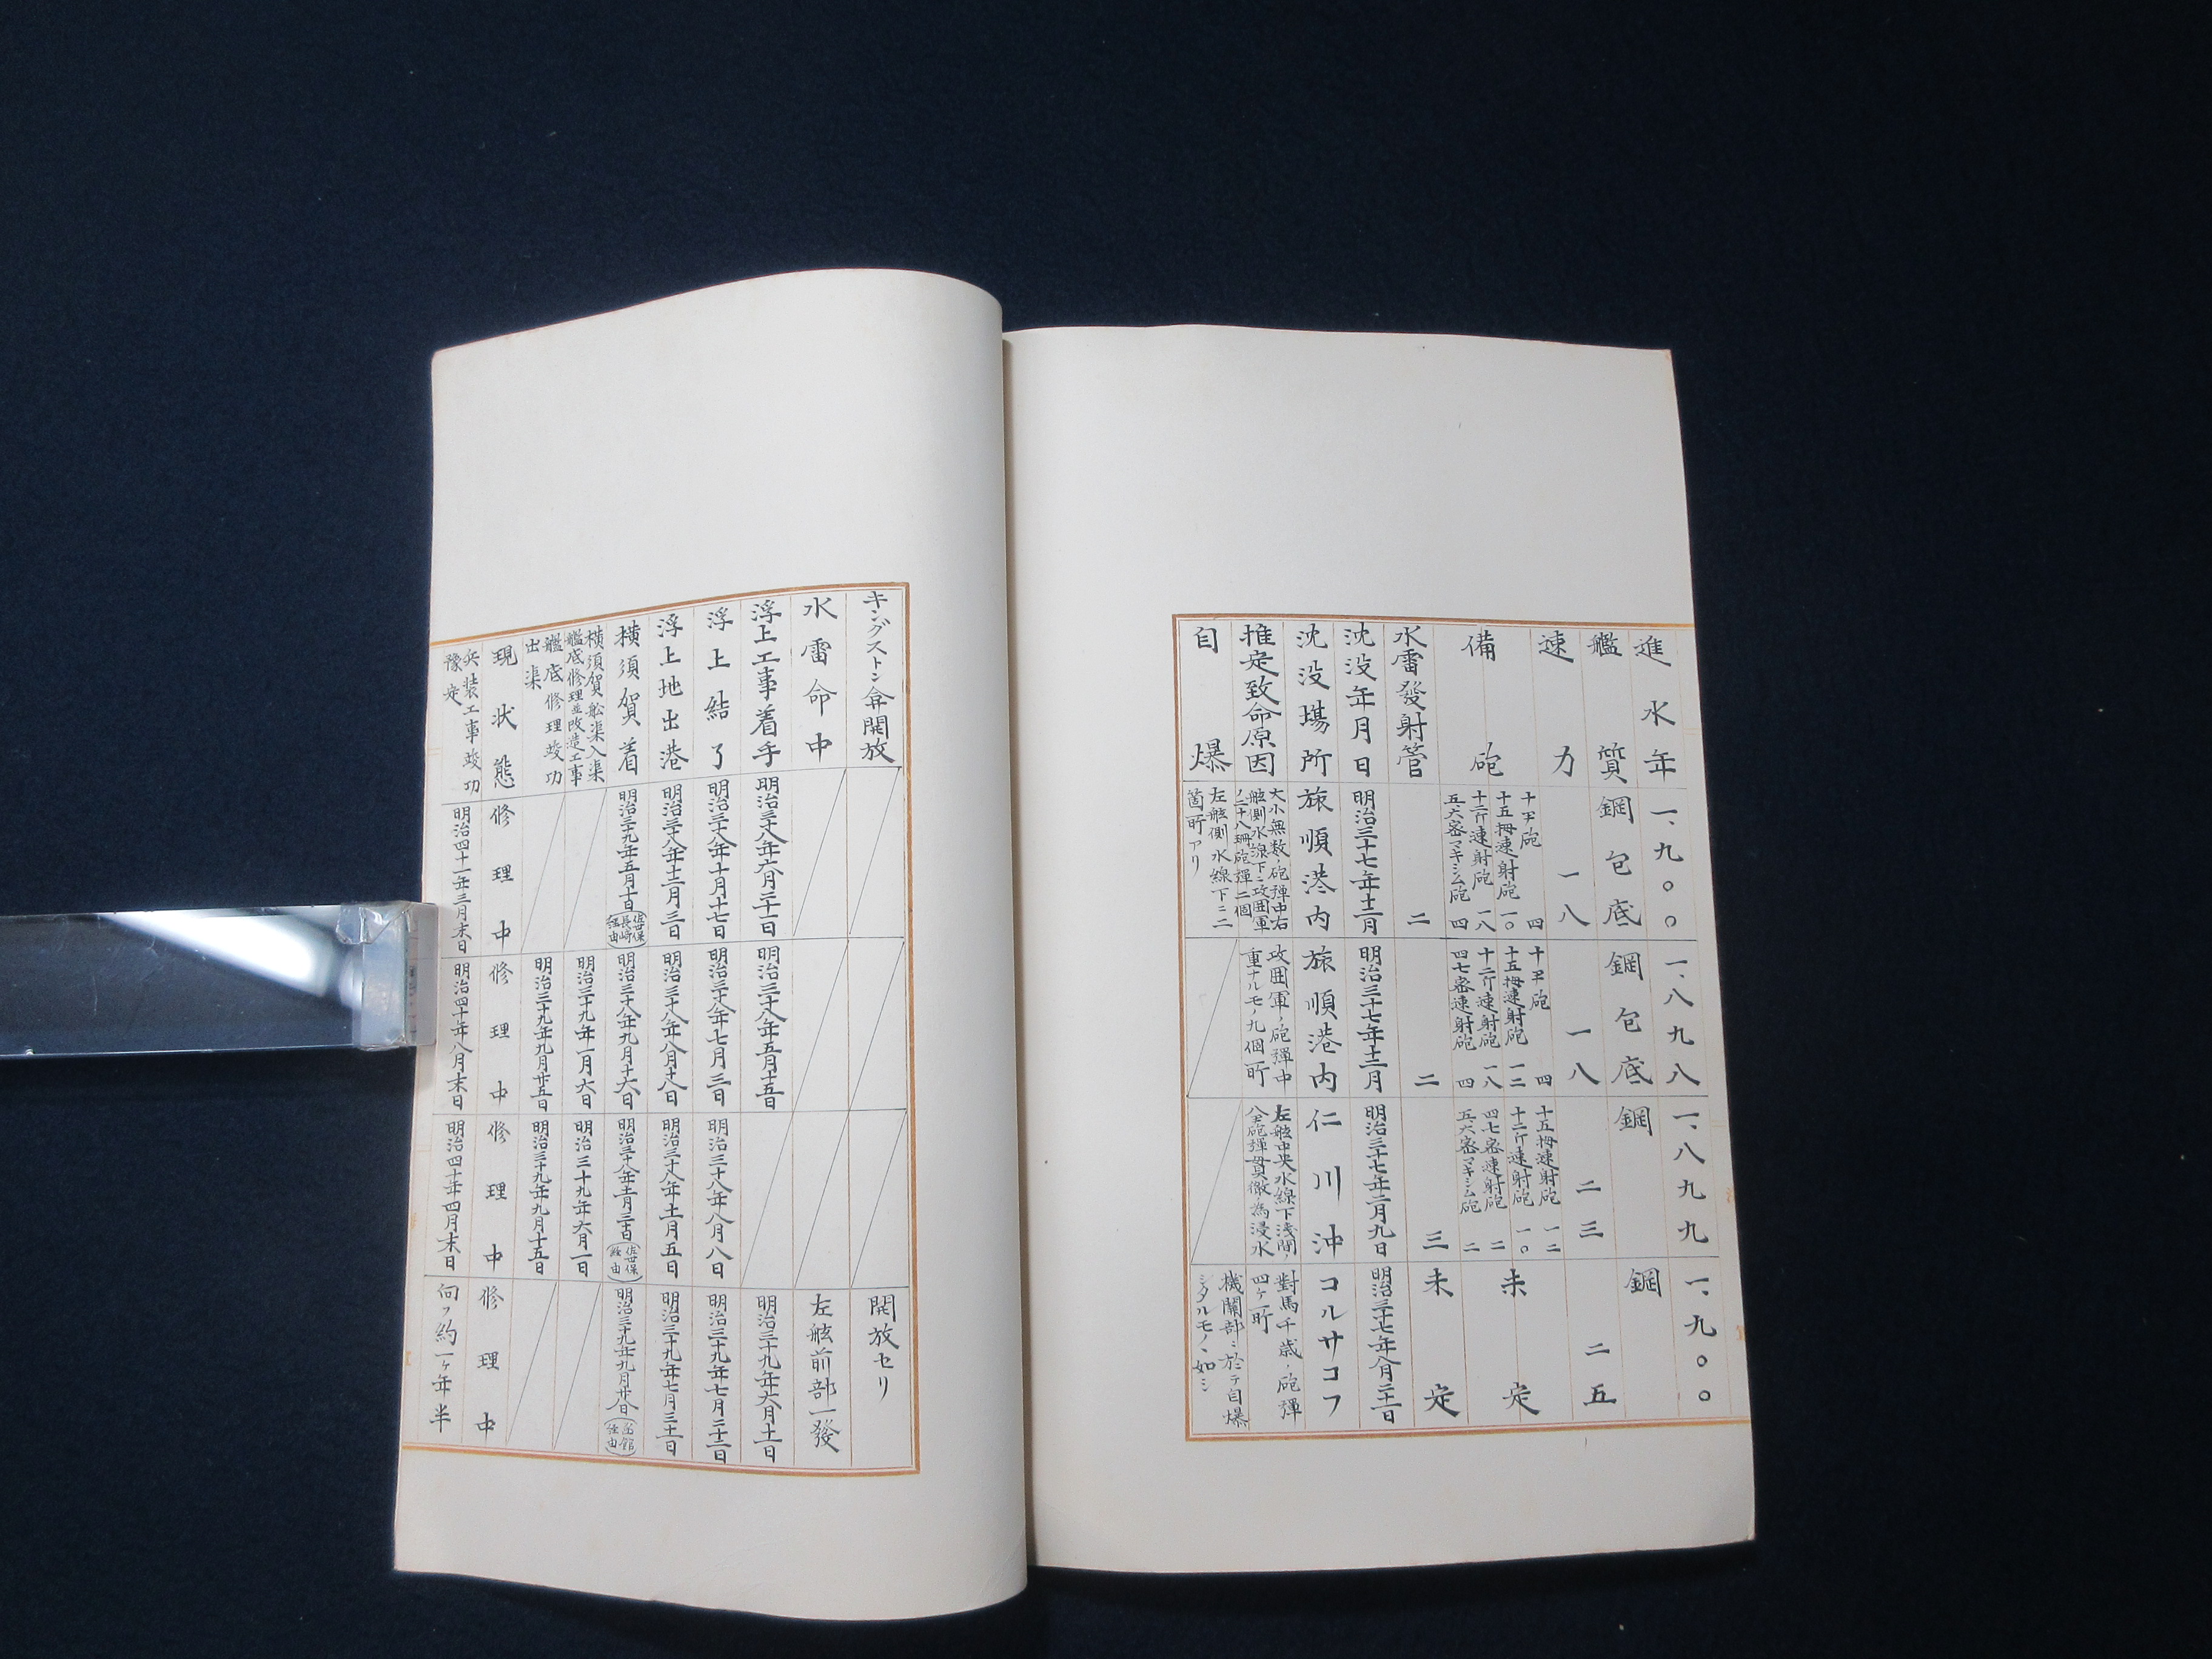 進水年 一、九〇〇 一、八九八 一、八九九 一、九〇〇
艦質 鋼包底 鋼包底 鋼 鋼
速力 一八 一八 二三 二五
備砲
十吋砲 四
十五拇速射砲 一〇
十二斤速射砲 一八
五、六密マキシム砲 四
十吋砲 四
十五拇速射砲 一二
十二斤速射砲 一八
四七密速射砲 四
十五拇速射砲 一二
十二斤速射砲 一〇
四七密速射砲 二
五、六密マキシム砲 二
未定
水雷發射管 二 二 三 未定
沈没年月日 明治三十七年十二月 明治三十七年十二月 明治三十七年二月九日 明治三十七年八月二十一日
沈没場所 旅順港内 旅順港内 仁川沖 コルサコフ
推定致命原因
大小無数ノ砲弾中右
舷側水線下ニ攻囲軍
ノ二十八珊砲彈二個
攻囲軍ノ砲彈中
重ナルモノ九個所
左舷中央水線下浅間ノ
八吋砲彈貫徹為浸水
對馬千歳ノ砲彈
四ケ所
自爆
左舷側水線下ニ二
箇所アリ
機關部ニ於テ自爆
シタルモノヽ如シ
キングストン弇開放 開放セリ
水雷命中 左舷前部一發
浮上工事着手 明治三十八年六月二十一日 明治三十八年五月十五日 明治三十九年六月十一日
浮上結了 明治三十八年十月十七日 明治三十八年七月三日 明治三十八年八月八日 明治三十九年七月二十二日
浮上地出港 明治三十八年十二月三日 明治三十八年八月十八日 明治三十八年十一月五日 明治三十九年七月三十一日
横須賀着 明治三十九年五月十日(佐世保長崎経由) 明治三十八年九月十六日 明治三十八年十一月三十日(佐世保経由) 明治三十九年九月廿八日(函館経由)
横須賀船渠入渠
艦底修理並改造工事 明治三十九年一月六日 明治三十九年六月一日
艦底修理竣功
出渠 明治三十九年九月廿五日 明治三十九年九月十五日
現状態 修理中 修理中 修理中 修理中
兵装工事竣功
豫定 明治四十一年三月末日 明治四十年八月末日 明治四十年四月末日 向フ約一ケ年半